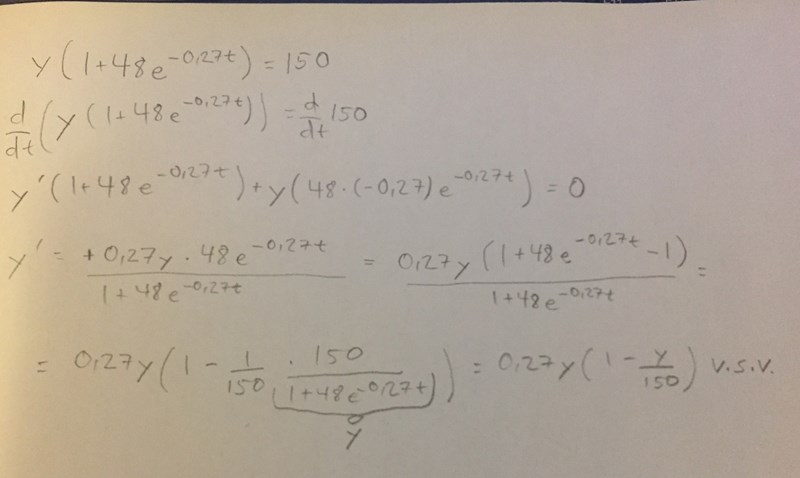 y(1+48e^-0,27t) = 150
d/dt (y(1+48e^-0,27t)) = d/dt 150
y'(1+48e^-0,27t) + y(48·(-0,27)e^-0,27t) = 0
y' = +0,27y · 48e^-0,27t / 1+48e^-0,27t = 0,27y (1+48e^-0,27t -1) / 1+48e^-0,27t =
= 0,27y (1 - 1/150 · 150 / (1+48e^-0,27t)) = 0,27y (1 - y/150) v.s.v.
y